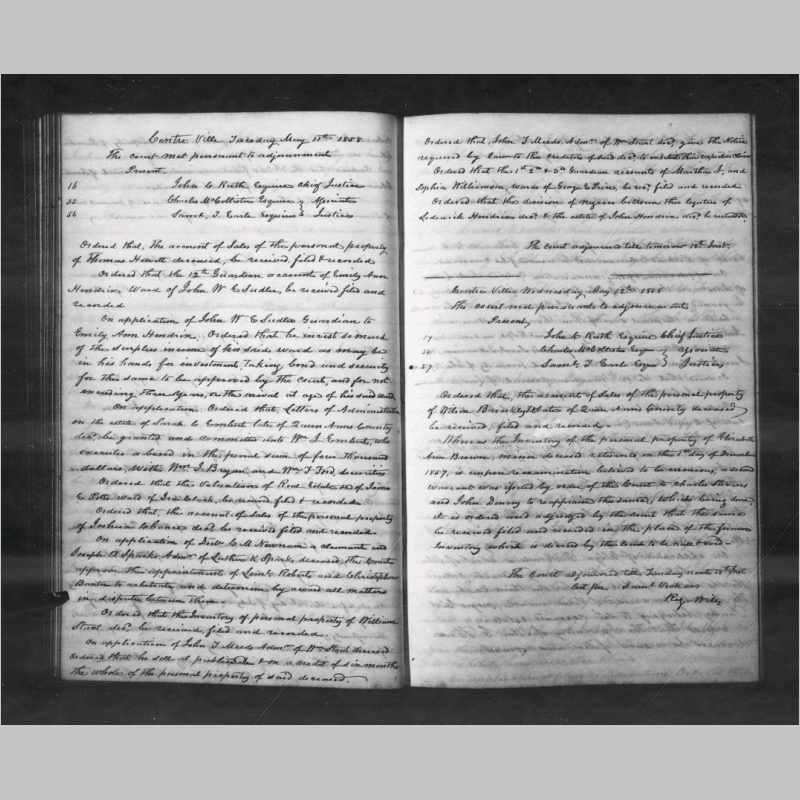 Centre Ville, Tuesday May 11th 1858
The court met persuant to adjournment
Present,
16 John C Ruth Esquire Chief Justice
33 Charles McCollister Esquire } Associate
56 Saml. T. Earle Esquire } Justices
Ordered that, the account of Sales of the personal property
of Thomas Hewitt deceased, be received, filed & recorded
Ordered that the 12th Guardian account of Emily Ann
Hendrix Ward of John W E Sudler, be received filed and
recorded
On application of John W E Sudler Guardian to
Emily Ann Hendrix, Ordered that he invest so much
of the surplus income of his said ward as may be
in his hands for investment, taking bond and security
for the same to be approved by the court, and for not
exceeding three years, or the arrival at age of his said ward.
On application Ordered that, Letters of Administration
on the estate of Sarah C Embert late of Queen Anns County
decd. be granted and committed unto Wm J. Embert, who
executes a bond in the penal sum of four thousand
dollars, With Wm. J. Bryan and Wm T Ford, securities
Ordered that the Valuation of Real Estate of James
C Potts Ward of Ira Clark, be received filed & recorded
Ordered that, the account of Sales of the personal property
of Joshua Chance decd. be received filed and recorded.
On application of C. M. Newman a claimant and
Joseph B Sparks Admr. of Luther K Sparks, deceased, the Court
approve the appointment of Roberts and Christopher
to arbitrate and determine by award all matters
in dispute between them
Ordered that the Inventory of personal property of William
Steat decd. be received, filed and recorded.
On application of John T Meeds Admr. of Wm Steat deceased
ordered that he sell at public sale & on a credit of six months
the whole of the personal property of said deceased.
Ordered that, John T Meeds Admr. of Wm Steat decd. give the Notice
required by Law to the creditors of said decd. to exhibit their
Ordered that the 1st 2nd & 3d Guardian accounts of Martha J. and
Sophia Williamson, wards of George Price, be recd. filed and recorded
Ordered that the division of negroes between the legatees of
Lodowick Hendrix decd. & the estate of John Hendrix decd. be recorded
The court adjourned till tomorrow 12th Inst.
Centre Ville, Wednesday May 12th 1858
The court met persuant to adjournment
Present,
17 John C Ruth Esquire Chief Justice
34 Charles McCollister Esqr } Associate
57 Saml. T Earle Esqr } Justices
Ordered that, the account of Sales of the personal property
of Brinkley late of Queen Anns County deceased
be received, filed and recorded
Whereas the Inventory of the personal property of Elizabeth
Ann Brown deceased returned on the 1st day of December
1857, is upon examination believed to be erroneous, a second
warrant was issued by order of the Court to Charles Stevens
and John to reappraise the same; Which being done,
it is ordered and adjudged by the Court that the same
be received filed and recorded in the place of the former
Inventory which is directed by the Court to be
The Court adjourned till Tuesday next 18th Inst.
Test per
Reg. Wills